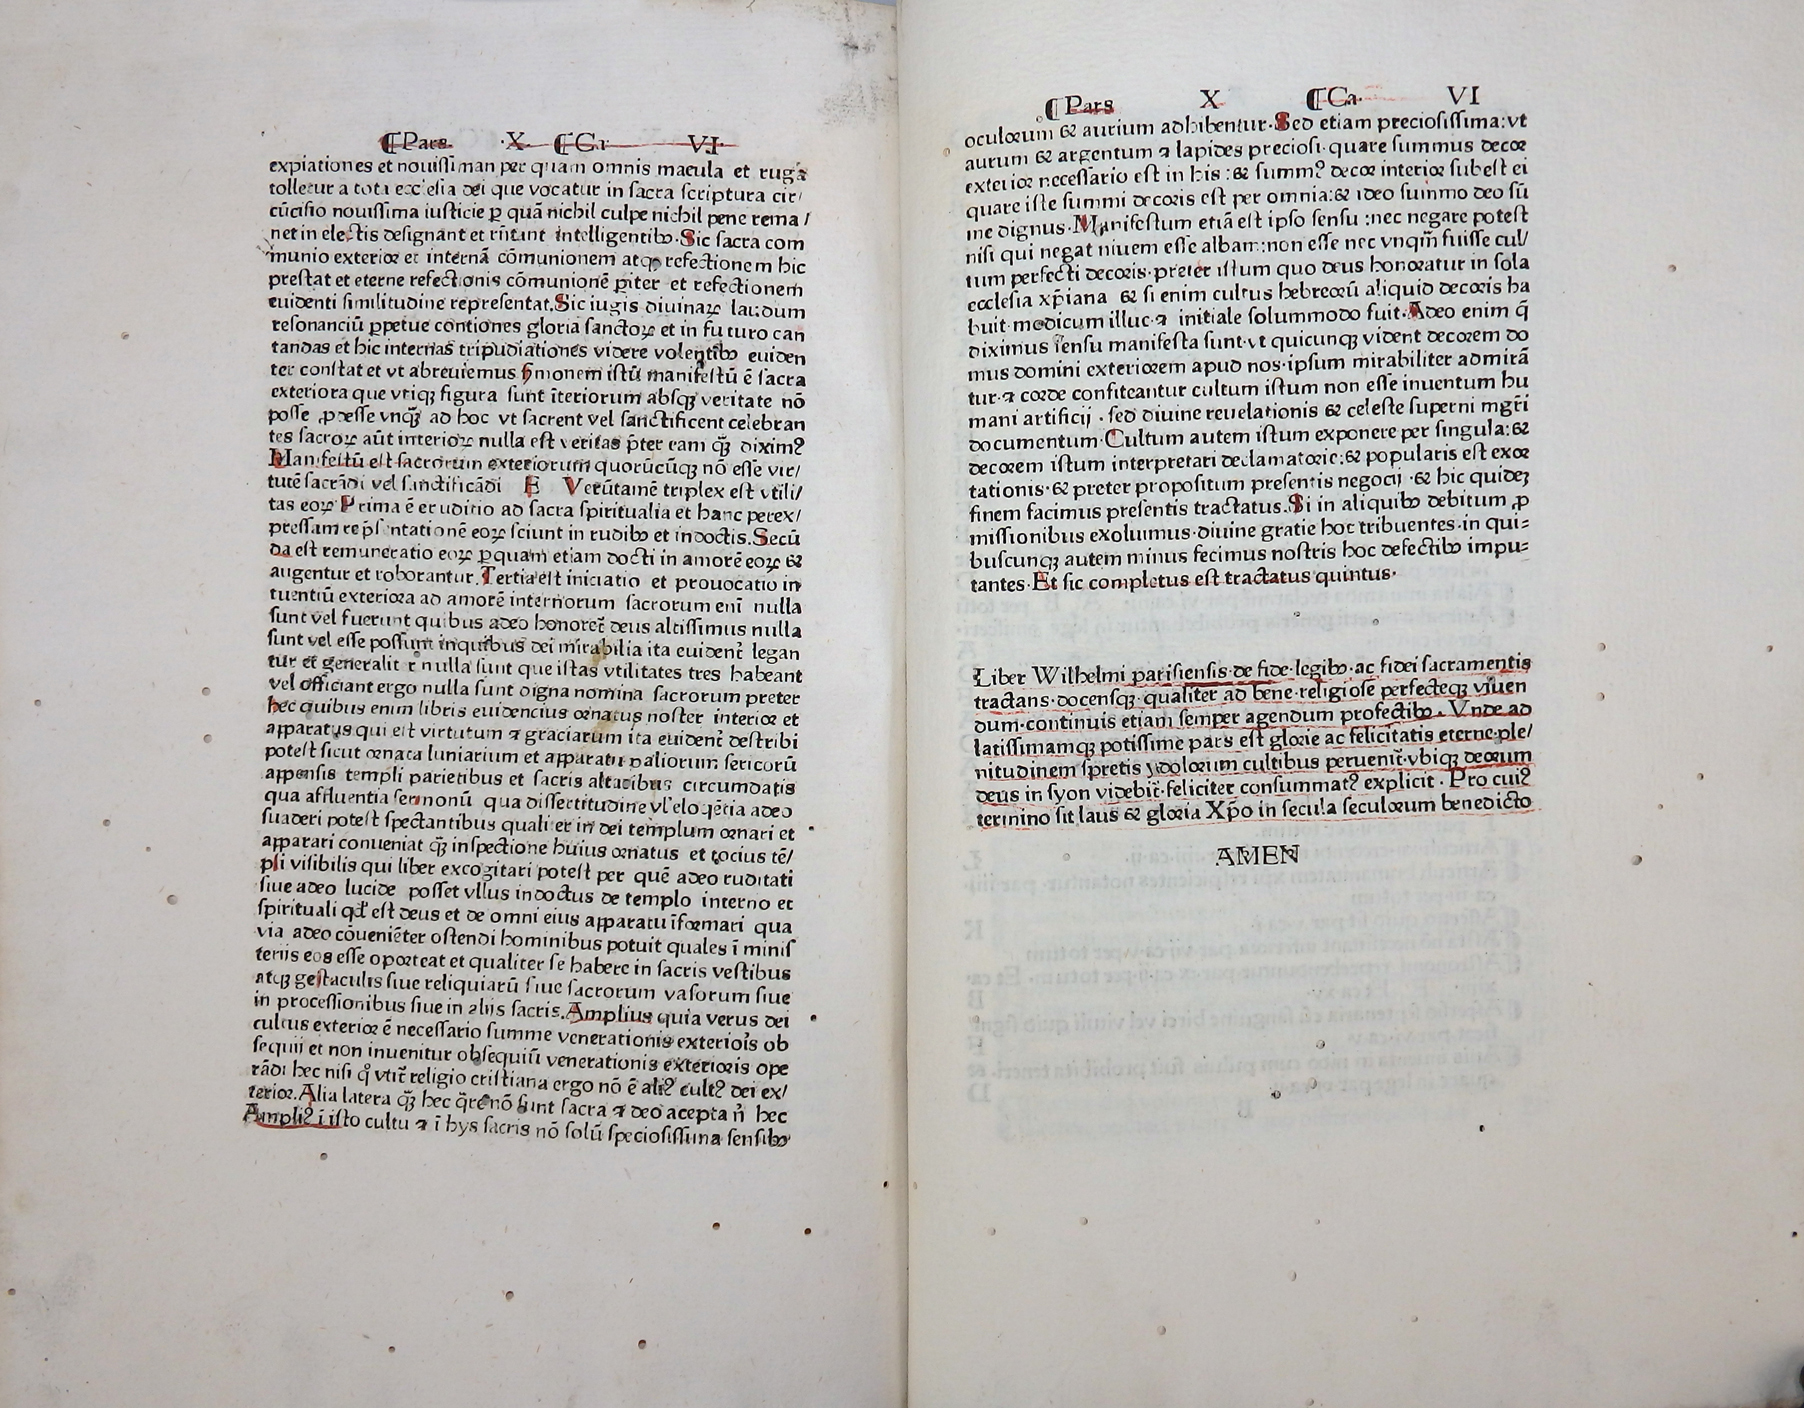 ¶Pars ·X· ¶Ca VI·
expiationes et nouissiman per quam omnis macula et rugā
tolletur a tota ecclesia dei que vocatur in sacra scriptura cir/
cūcisio nouissima iusticie ꝑ quā nichil culpe nichil pene rema /
net in electis designant et rn̄tant intelligentibꝫ·Sic sacra com
munio exterior et internā cōmunionem atqꝫ refectionem hic
prestat et eterne refectionis cōmunionē ꝑiter et refectionem
euidenti similitudine representat.Sic iugis diuinaꝝ laudum
resonanciū ꝑpetue contiones gloria sanctoꝝ et in futuro can
tandas et hic internas tripudiationes videre volentibꝫ euiden
ter constat et vt abreuiemus ẜmonem istū manifestū ē sacra
exteriora que vtiqꝫ figura sunt īteriorum absqꝫ veritate nō
posse ꝓdesse vnqꝫ̄ ad hoc vt sacrent vel sanctificent celebran
tes sacroꝝ aūt interioꝝ nulla est veritas p̄ter eam qꝫ̄ diximꝰ
Manifestū est sacrorum exteriorum quorūcūqꝫ nō esse vir/
tutē sacrādi vel sanctificādi E Verūtamē triplex est vtili/
tas eoꝝ Prima ē eruditio ad sacra spiritualia et hanc perex/
pressam rep̄sentationē eoꝝ sciunt in rudibꝫ et indoctis.Secū
da est remuneratio eoꝝ ꝑquam etiam docti in amorē eoꝝ &
augentur et roborantur.Tertia est iniciatio et prouocatio in
tuentiū exteriora ad amorē internorum sacrorum enī nulla
sunt vel fuerunt quibus adeo honoret̄ deus altissimus nulla
sunt vel esse possunt inquibus dei mirabilia ita euident̄ legan
tur et generalit̄ r nulla sunt que istas vtilitates tres habeant
vel officiant ergo nulla sunt digna nomina sacrorum preter
hec quibus enim libris euidencius ornatus noster interior et
apparatus qui est virtutum ⁊ graciarum ita euident̄ destribi
potest sicut ornata luniarium et apparatu paliorum sericorū
appensis templi parietibus et sacris altaribus circumdatis
qua affluentia sermonū qua dissertitudine vl̓ eloq̄ētia adeo
suaderi potest spectantibus qualiter in dei templum ornari et
apparari conueniat qꝫ̄ inspectione huius ornatus et tocius tē/
pli visibilis qui liber excogitari potest per quē adeo ruditati
siue adeo lucide posset vllus indoctus de templo interno et
spirituali qd̓ est deus et de omni eius apparatu īformari qua
via adeo cōueniēter ostendi hominibus potuit quales ī minis
teriis eos esse oporteat et qualiter se habere in sacris vestibus
atqꝫ gestaculis siue reliquiarū siue sacrorum vasorum siue
in processionibus siue in aliis sacris.Amplius quia verus dei
cultus exterior ē necessario summe venerationis exterio'is ob
sequii et non inuenitur obsequiū venerationis exterioris ope
rādi hec nisi q̊ vtit̄ religio cristiana ergo nō ē aliꝰ cultꝰ dei ex/
terior.Alia latera qꝫ̄ hec q̄re nō sunt sacra ⁊ deo acepta n̄ hec
Ampliꝰ ī isto cultu ⁊ ī hys sacris nō solū speciosissima sensibꝫ
¶Pars X ¶Ca· VI
oculorum & aurium adhibentur·Sed etiam preciosissima:vt
aurum & argentum ⁊ lapides preciosi·quare summus decor
exterior necessario est in his :& summꝰ decor interior subest ei
quare iste summi decoris est per omnia:& ideo summo deo sū
me dignus·Manifestum etiā est ipso sensu :nec negare potest
nisi qui negat niuem esse albam:non esse nec vnqm̄ fuisse cul/
tum perfecti decoris·preter istum quo deus honoratur in sola
ecclesia xp̄iana & si enim cultus hebreorū aliquid decoris ha
buit·modicum illuc·⁊ initiale solummodo fuit·Adeo enim q̄
diximus sensu manifesta sunt·vt quicunqꝫ vident decorem do
mus domini exteriorem apud nos·ipsum mirabiliter admirā
tur·⁊ corde confiteantur cultum istum non esse inuentum hu
mani artificij · sed diuine reuelationis & celeste superni mgr̄i
documentum·Cultum autem istum exponere per singula:&
decorem istum interpretari declamatorie:& popularis est exor
tationis·& preter propositum presentis negocij ·& hic quideꝫ
finem facimus presentis tractatus.Si in aliquibꝫ debitum ꝓ
missionibus exoluimus·diuine gratie hoc tribuentes·in qui=
buscunqꝫ autem minus fecimus nostris hoc defectibꝫ impu=
tantes·Et sic completus est tractatus quintus·
Liber Wilhelmi parisiensis·de fide·legibꝫ·ac fidei sacramentis
tractans·docensqꝫ·qualiter ad bene·religiose perfecteqꝫ viuen
dum·continuis etiam semper agendum profectibꝫ· Vnde ad
latissimamqꝫ potissime pars est glorie ac felicitatis eterne·ple/
nitudinem spretis ydolorum cultibus peruenit̄·vbiqꝫ deorum
deus in syon videbit̄·feliciter consummatꝰ explicit · Pro cuiꝰ
termino sit laus & gloria Xp̄o in secula seculorum benedicto
AMEN